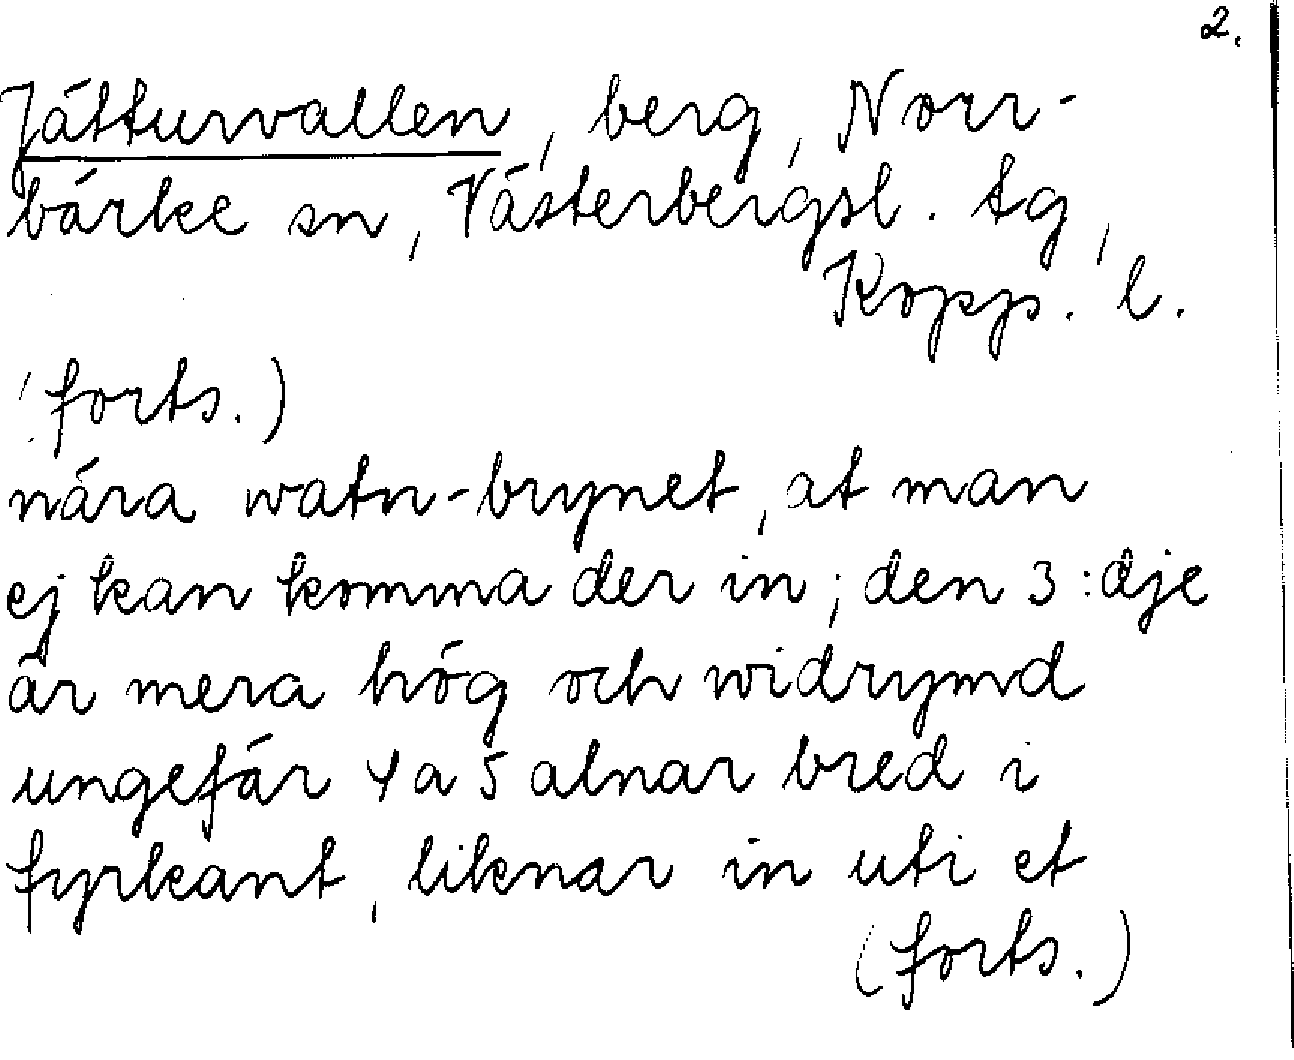 2.
Jätturvallen, berg, Norr-
bärke sn, Västerbergsl. tg,
Kopp. l.
(forts.)
nära watn-brynet, at man
ej kan komma der in; den 3:dje
är mera hög och widrymd
ungefär 4 a 5 alnar bred i
fyrkant, liknar in uti et
(forts.)